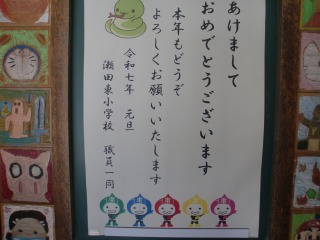 あけまして
おめでとうございます
本年もどうぞ
よろしくお願いいたします
令和七年 元旦
瀬田東小学校 職員一同